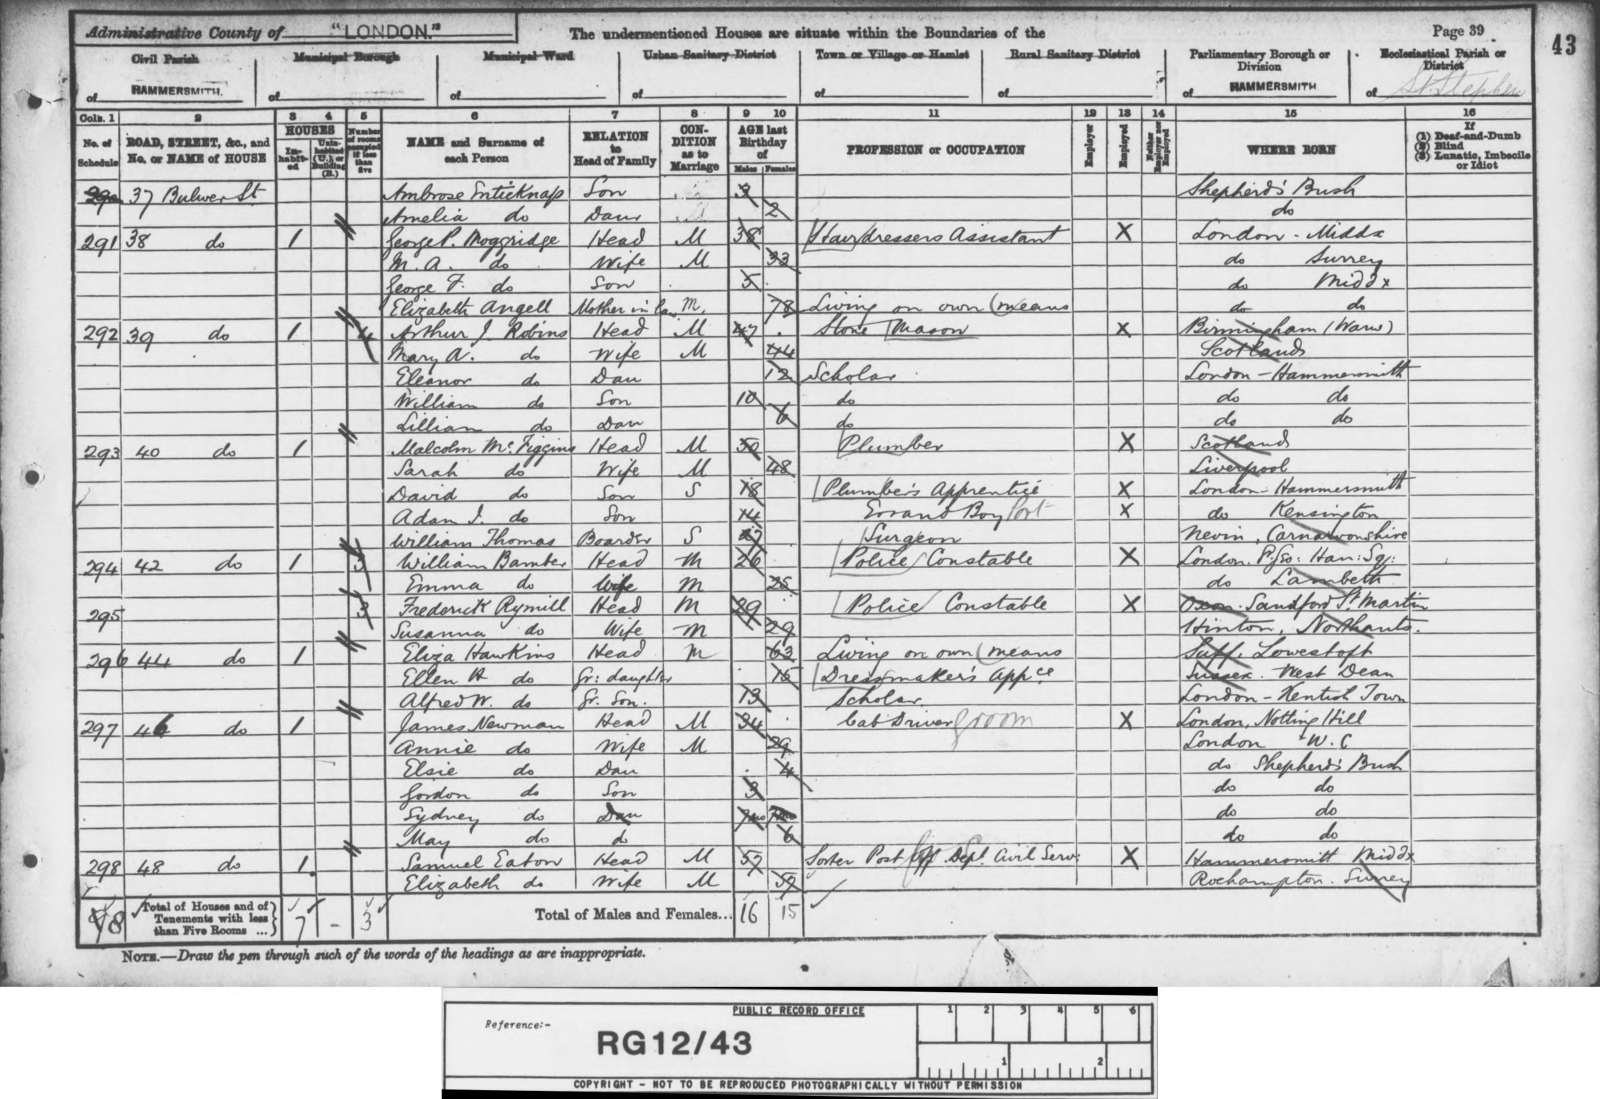 Administrative County of "LONDON." The undermentioned Houses are situate within the Boundaries of the Page 39 43
Civil Parish of HAMMERSMITH. Municipal Borough of Municipal Ward of Urban Sanitary District of Town or Village or Hamlet of Rural Sanitary District of Parliamentary Borough or Division of HAMMERSMITH Ecclesiastical Parish or District of St. Stephen
Cols. 1 2 3 4 5 6 7 8 9 10 11 12 13 14 15 16
No. of Schedule ROAD, STREET, &c., and No. or NAME of HOUSE HOUSES Inhabited Uninhabited (U.) or Building (B.) Number of rooms occupied if less than five NAME and Surname of each Person RELATION to Head of Family CONDITION as to Marriage AGE last Birthday of Males Females PROFESSION or OCCUPATION Employer Employed Neither Employer nor Employed WHERE BORN If (1) Deaf-and-Dumb (2) Blind (3) Lunatic, Imbecile or Idiot
290 37 Bulwer St Ambrose Enticknap Son 3 Shepherd's Bush
Amelia do Daur 2 do
291 38 do 1 George P. Moggridge Head M 38 Hairdressers Assistant X London - Middx
M. A. do Wife M 33 do Surrey
George F. do Son 5 do Middx
Elizabeth Angell Mother in law M. 78 Living on own means do do
292 39 do 1 4 Arthur J. Robins Head M 47 Stone Mason X Birmingham (Warw)
Mary A. do Wife M 44 Scotland
Eleanor do Dau 12 Scholar London - Hammersmith
William do Son 10 do do do
Lillian do Dau 6 do do do
293 40 do 1 Malcolm Mc Figgins Head M 50 Plumber X Scotland
Sarah do Wife M 48 Liverpool
David do Son S 18 Plumber's Apprentice X London - Hammersmith
Adam J. do Son 14 Errand Boy Port X do Kensington
William Thomas Boarder S 27 Surgeon Nevin, Carnarvonshire
294 42 do 1 3 William Bamber Head M 26 Police Constable X London. P: Go: Han: Sq:
Emma do Wife M 25 do Lambeth
295 3 Frederick Rymill Head M 29 Police Constable X Oxon. Sandford St. Martin
Susanna do Wife M 29 Hinton, Northants.
296 44 do 1 Eliza Hawkins Head M 63 Living on own means Suff. Lowestoft
Ellen A do Gr: daughter 15 Dressmaker's Appce Sussex. West Dean
Alfred W. do Gr. Son. 13 Scholar London - Kentish Town
297 46 do 1 James Newman Head M 34 Cab Driver groom X London, Notting Hill
Annie do Wife M 29 London W.C
Elsie do Dau 4 do Shepherd's Bush
Gordon do Son 3 do do
Sydney do Dau 7mo do do
May do do 6 do do
298 48 do 1 Samuel Eaton Head M 57 Sorter Post Off. Dept. Civil Serv: X Hammersmith Middx
Elizabeth do Wife M 59 Roehampton. Surrey
8 Total of Houses and of Tenements with less than Five Rooms ... 7 - 3 Total of Males and Females... 16 15
NOTE.—Draw the pen through such of the words of the headings as are inappropriate.
PUBLIC RECORD OFFICE 1 2 3 4 5 6
Reference:-
RG12/43
1 2
COPYRIGHT - NOT TO BE REPRODUCED PHOTOGRAPHICALLY WITHOUT PERMISSION